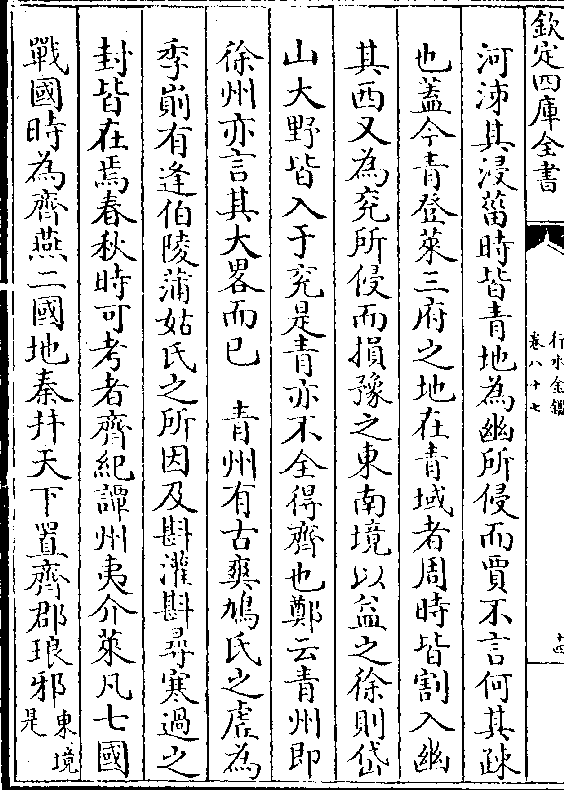 欽定四庫全書
行水金鑑
卷八十七
十四
河泲其浸菑時皆青地為幽所侵而賈不言何其疎
也蓋今青登萊三府之地在青域者周時皆割入幽
其西又為兖所侵而損豫之東南境以益之徐則岱
山大野皆入于兖是青亦不全得齊也鄭云青州即
徐州亦言其大畧而已　青州有古爽鳩氏之虚為
季崱有逢伯陵蒲姑氏之所因及斟灌斟尋寒過之
封皆在焉春秋時可考者齊紀譚州夷介萊凡七國
戰國時為齊燕二國地秦并天下置齊郡琅邪東境
是